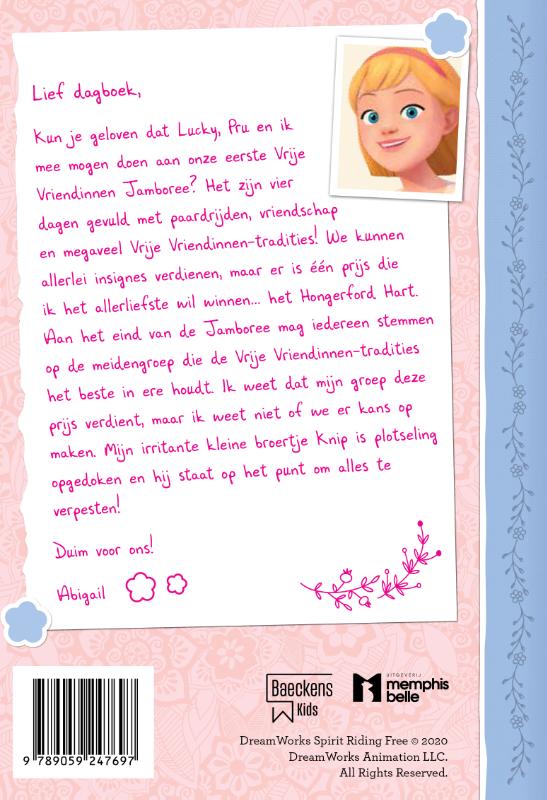 Lief dagboek,
Kun je geloven dat Lucky, Pru en ik
mee mogen doen aan onze eerste Vrije
Vriendinnen Jamboree? Het zijn vier
dagen gevuld met paardrijden, vriendschap
en megaveel Vrije Vriendinnen-tradities! We kunnen
allerlei insignes verdienen, maar er is één prijs die
ik het allerliefste wil winnen... het Hongerford Hart.
Aan het eind van de Jamboree mag iedereen stemmen
op de meidengroep die de Vrije Vriendinnen-tradities
het beste in ere houdt. Ik weet dat mijn groep deze
prijs verdient, maar ik weet niet of we er kans op
maken. Mijn irritante kleine broertje Knip is plotseling
opgedoken en hij staat op het punt om alles te
verpesten!
Duim voor ons!
Abigail
Baeckens
Kids
UITGEVERIJ
memphis
belle
DreamWorks Spirit Riding Free © 2020
DreamWorks Animation LLC.
All Rights Reserved.
9 789059 247697